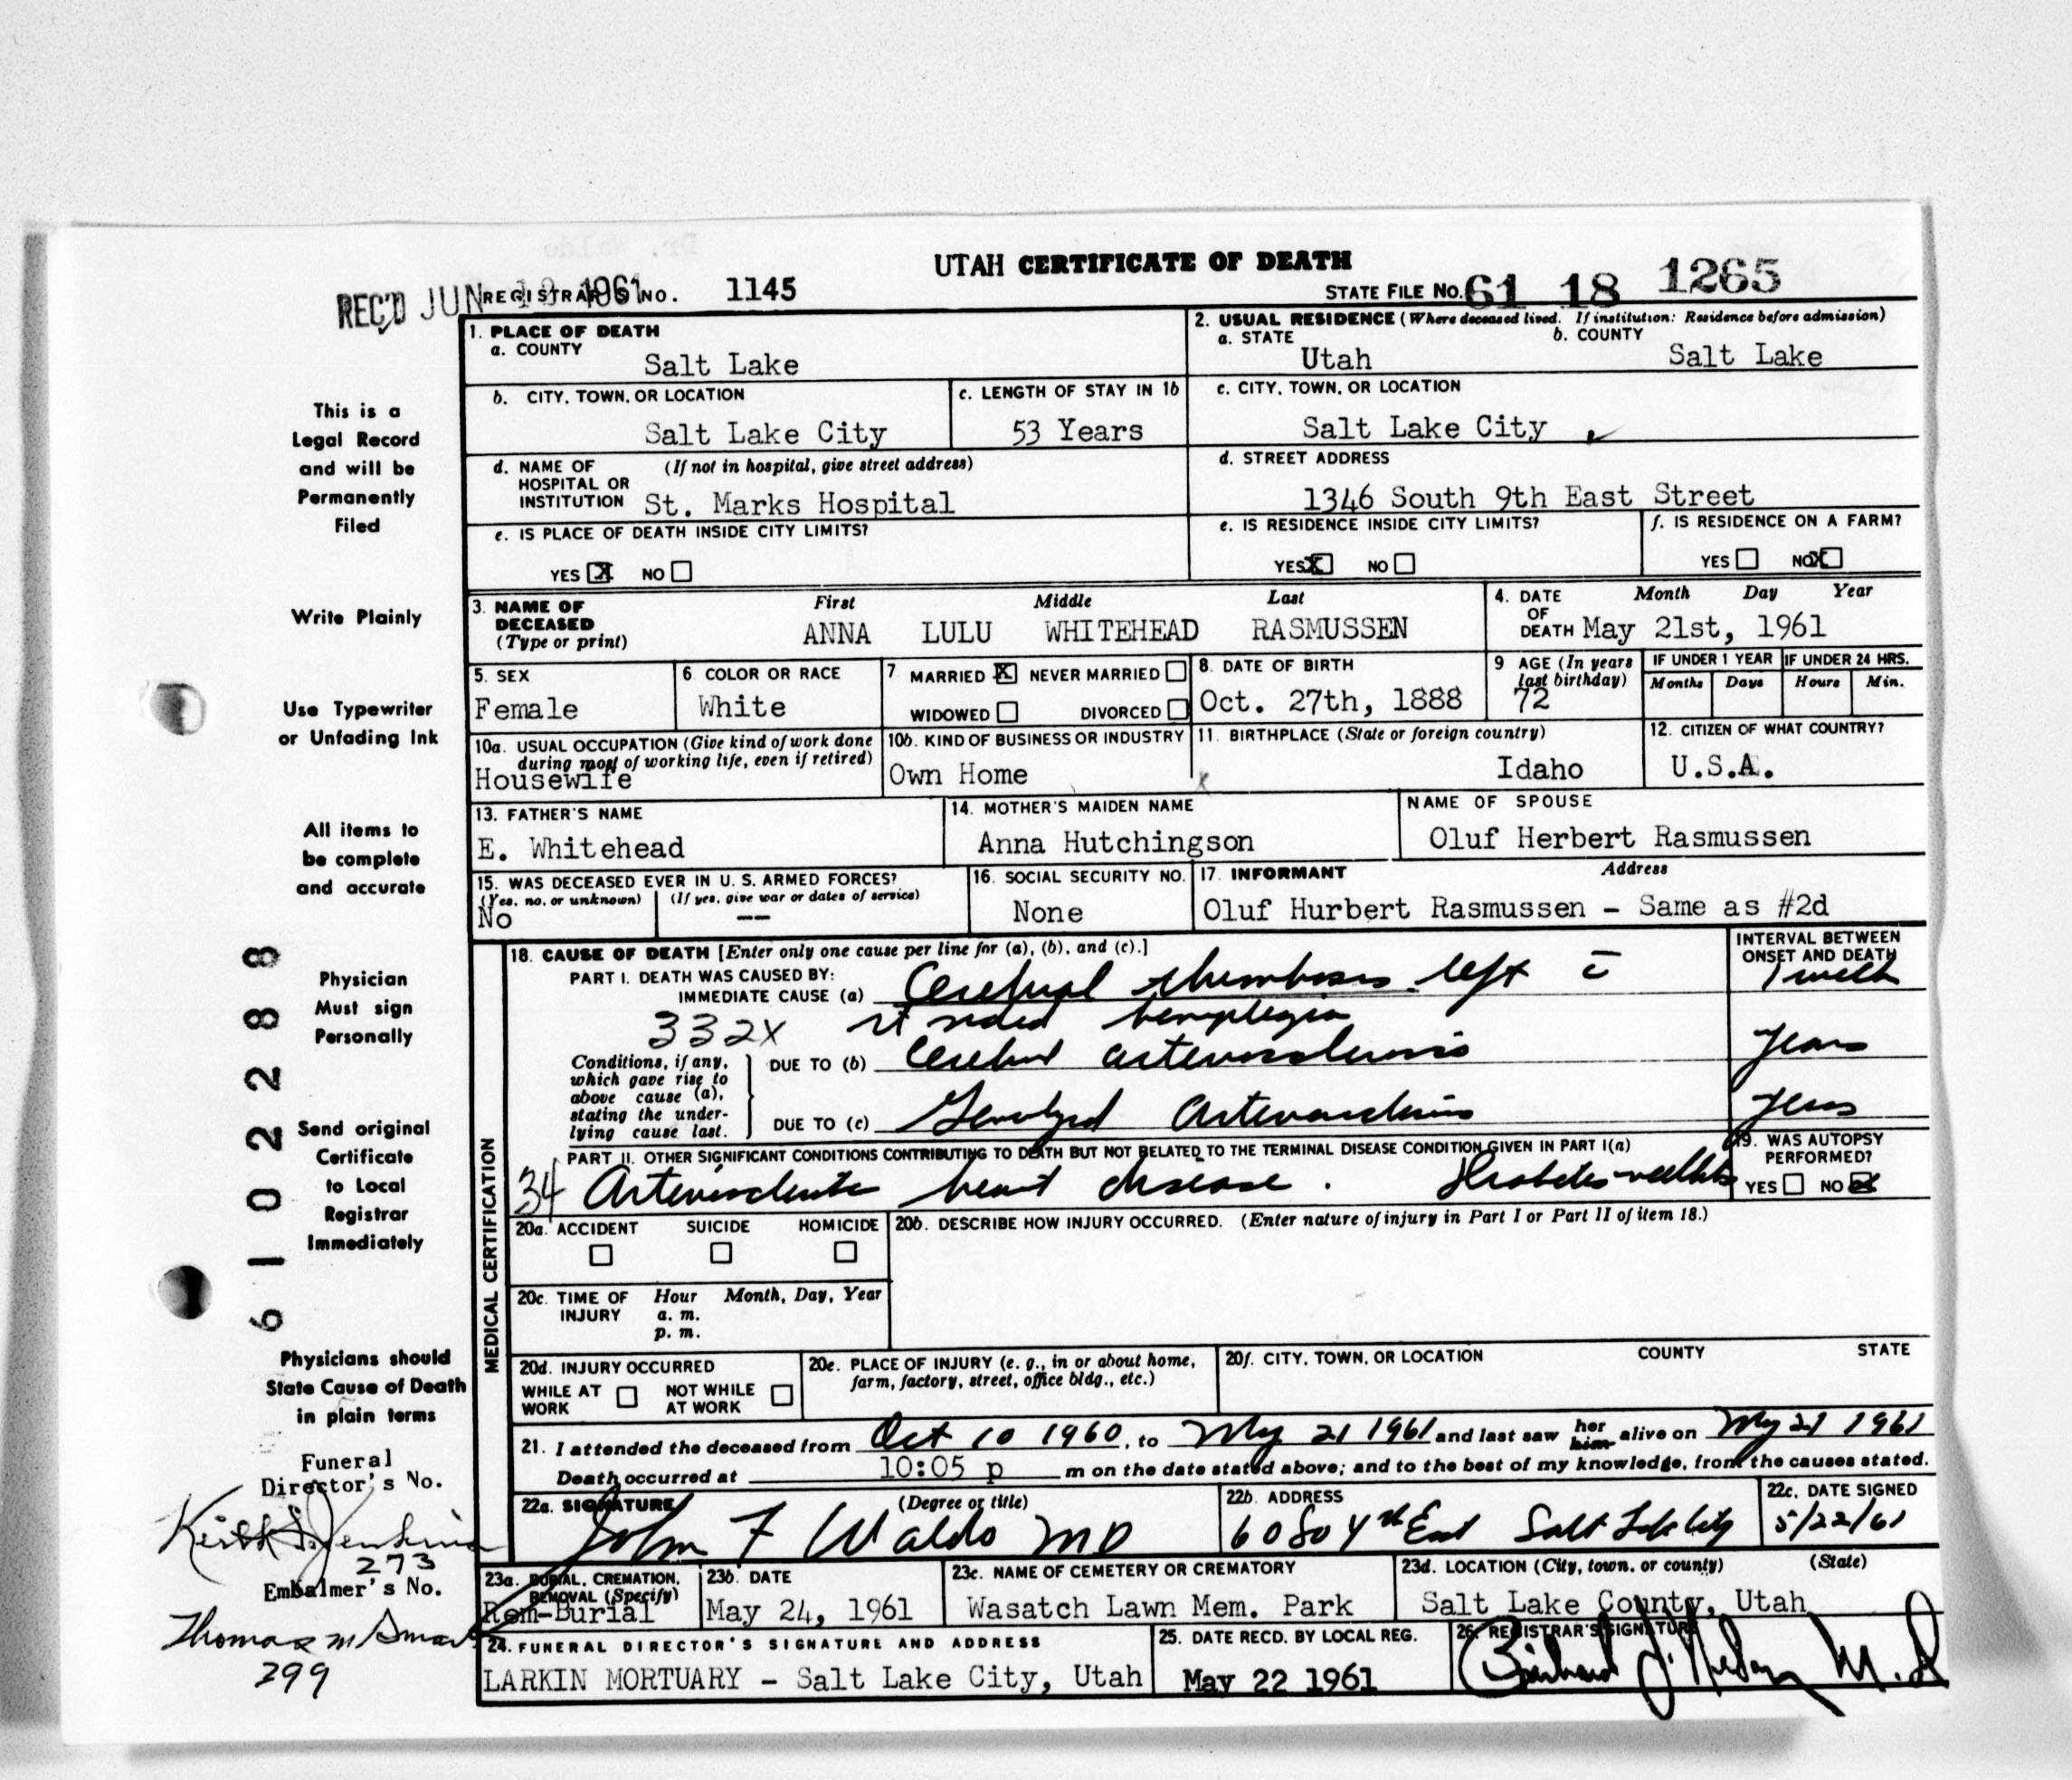 UTAH CERTIFICATE OF DEATH
REC'D JUN 1961 REGISTRAR'S NO. 1145
STATE FILE NO. 61 18 1265
1. PLACE OF DEATH
a. COUNTY
Salt Lake
2. USUAL RESIDENCE (Where deceased lived. If institution: Residence before admission)
a. STATE b. COUNTY
Utah Salt Lake
b. CITY, TOWN, OR LOCATION
Salt Lake City
c. LENGTH OF STAY IN 1b
53 Years
c. CITY, TOWN, OR LOCATION
Salt Lake City
d. NAME OF HOSPITAL OR INSTITUTION (If not in hospital, give street address)
St. Marks Hospital
d. STREET ADDRESS
1346 South 9th East Street
e. IS PLACE OF DEATH INSIDE CITY LIMITS?
YES X NO
e. IS RESIDENCE INSIDE CITY LIMITS?
YES X NO
f. IS RESIDENCE ON A FARM?
YES NO X
3. NAME OF DECEASED (Type or print)
First Middle Last
ANNA LULU WHITEHEAD RASMUSSEN
4. DATE OF DEATH Month Day Year
May 21st, 1961
5. SEX
Female
6. COLOR OR RACE
White
7. MARRIED X NEVER MARRIED
WIDOWED DIVORCED
8. DATE OF BIRTH
Oct. 27th, 1888
9 AGE (In years last birthday)
72
IF UNDER 1 YEAR IF UNDER 24 HRS.
Months Days Hours Min.
10a. USUAL OCCUPATION (Give kind of work done during most of working life, even if retired)
Housewife
10b. KIND OF BUSINESS OR INDUSTRY
Own Home
11. BIRTHPLACE (State or foreign country)
Idaho
12. CITIZEN OF WHAT COUNTRY?
U.S.A.
13. FATHER'S NAME
E. Whitehead
14. MOTHER'S MAIDEN NAME
Anna Hutchingson
NAME OF SPOUSE
Oluf Herbert Rasmussen
15. WAS DECEASED EVER IN U. S. ARMED FORCES?
(Yes, no, or unknown) (If yes, give war or dates of service)
No --
16. SOCIAL SECURITY NO.
None
17. INFORMANT Address
Oluf Hurbert Rasmussen - Same as #2d
MEDICAL CERTIFICATION
18. CAUSE OF DEATH [Enter only one cause per line for (a), (b), and (c).]
INTERVAL BETWEEN ONSET AND DEATH
PART I. DEATH WAS CAUSED BY:
IMMEDIATE CAUSE (a) Cerebral thrombosis left c̄ 1 week
332X rt sided hemiplegia
Conditions, if any, which gave rise to above cause (a), stating the underlying cause last.
DUE TO (b) Cerebral arteriosclerosis Years
DUE TO (c) Generalized Arteriosclerosis Years
PART II. OTHER SIGNIFICANT CONDITIONS CONTRIBUTING TO DEATH BUT NOT RELATED TO THE TERMINAL DISEASE CONDITION GIVEN IN PART I(a)
34 Arteriosclerotic heart disease. Diabetes mellitus
19. WAS AUTOPSY PERFORMED?
YES NO X
20a. ACCIDENT SUICIDE HOMICIDE
20b. DESCRIBE HOW INJURY OCCURRED. (Enter nature of injury in Part I or Part II of item 18.)
20c. TIME OF INJURY Hour Month, Day, Year
a. m.
p. m.
20d. INJURY OCCURRED
WHILE AT WORK NOT WHILE AT WORK
20e. PLACE OF INJURY (e. g., in or about home, farm, factory, street, office bldg., etc.)
20f. CITY, TOWN, OR LOCATION COUNTY STATE
21. I attended the deceased from Oct 10 1960, to May 21 1961 and last saw her him alive on May 21 1961
Death occurred at 10:05 p m on the date stated above; and to the best of my knowledge, from the causes stated.
22a. SIGNATURE (Degree or title)
John F Waldo MD
22b. ADDRESS
Salt Lake City
22c. DATE SIGNED
5/22/61
23a. BURIAL, CREMATION, REMOVAL (Specify)
Rem-Burial
23b. DATE
May 24, 1961
23c. NAME OF CEMETERY OR CREMATORY
Wasatch Lawn Mem. Park
23d. LOCATION (City, town, or county) (State)
Salt Lake County, Utah
24. FUNERAL DIRECTOR'S SIGNATURE AND ADDRESS
LARKIN MORTUARY - Salt Lake City, Utah
25. DATE RECD. BY LOCAL REG.
May 22 1961
26. REGISTRAR'S SIGNATURE
M.D
This is a
Legal Record
and will be
Permanently
Filed
Write Plainly
Use Typewriter
or Unfading Ink
All items to
be complete
and accurate
Physician
Must sign
Personally
Send original
Certificate
to Local
Registrar
Immediately
Physicians should
State Cause of Death
in plain terms
6102288
Funeral
Director's No.
Keith S. Jenkins
273
Embalmer's No.
Thomas M Smart
299